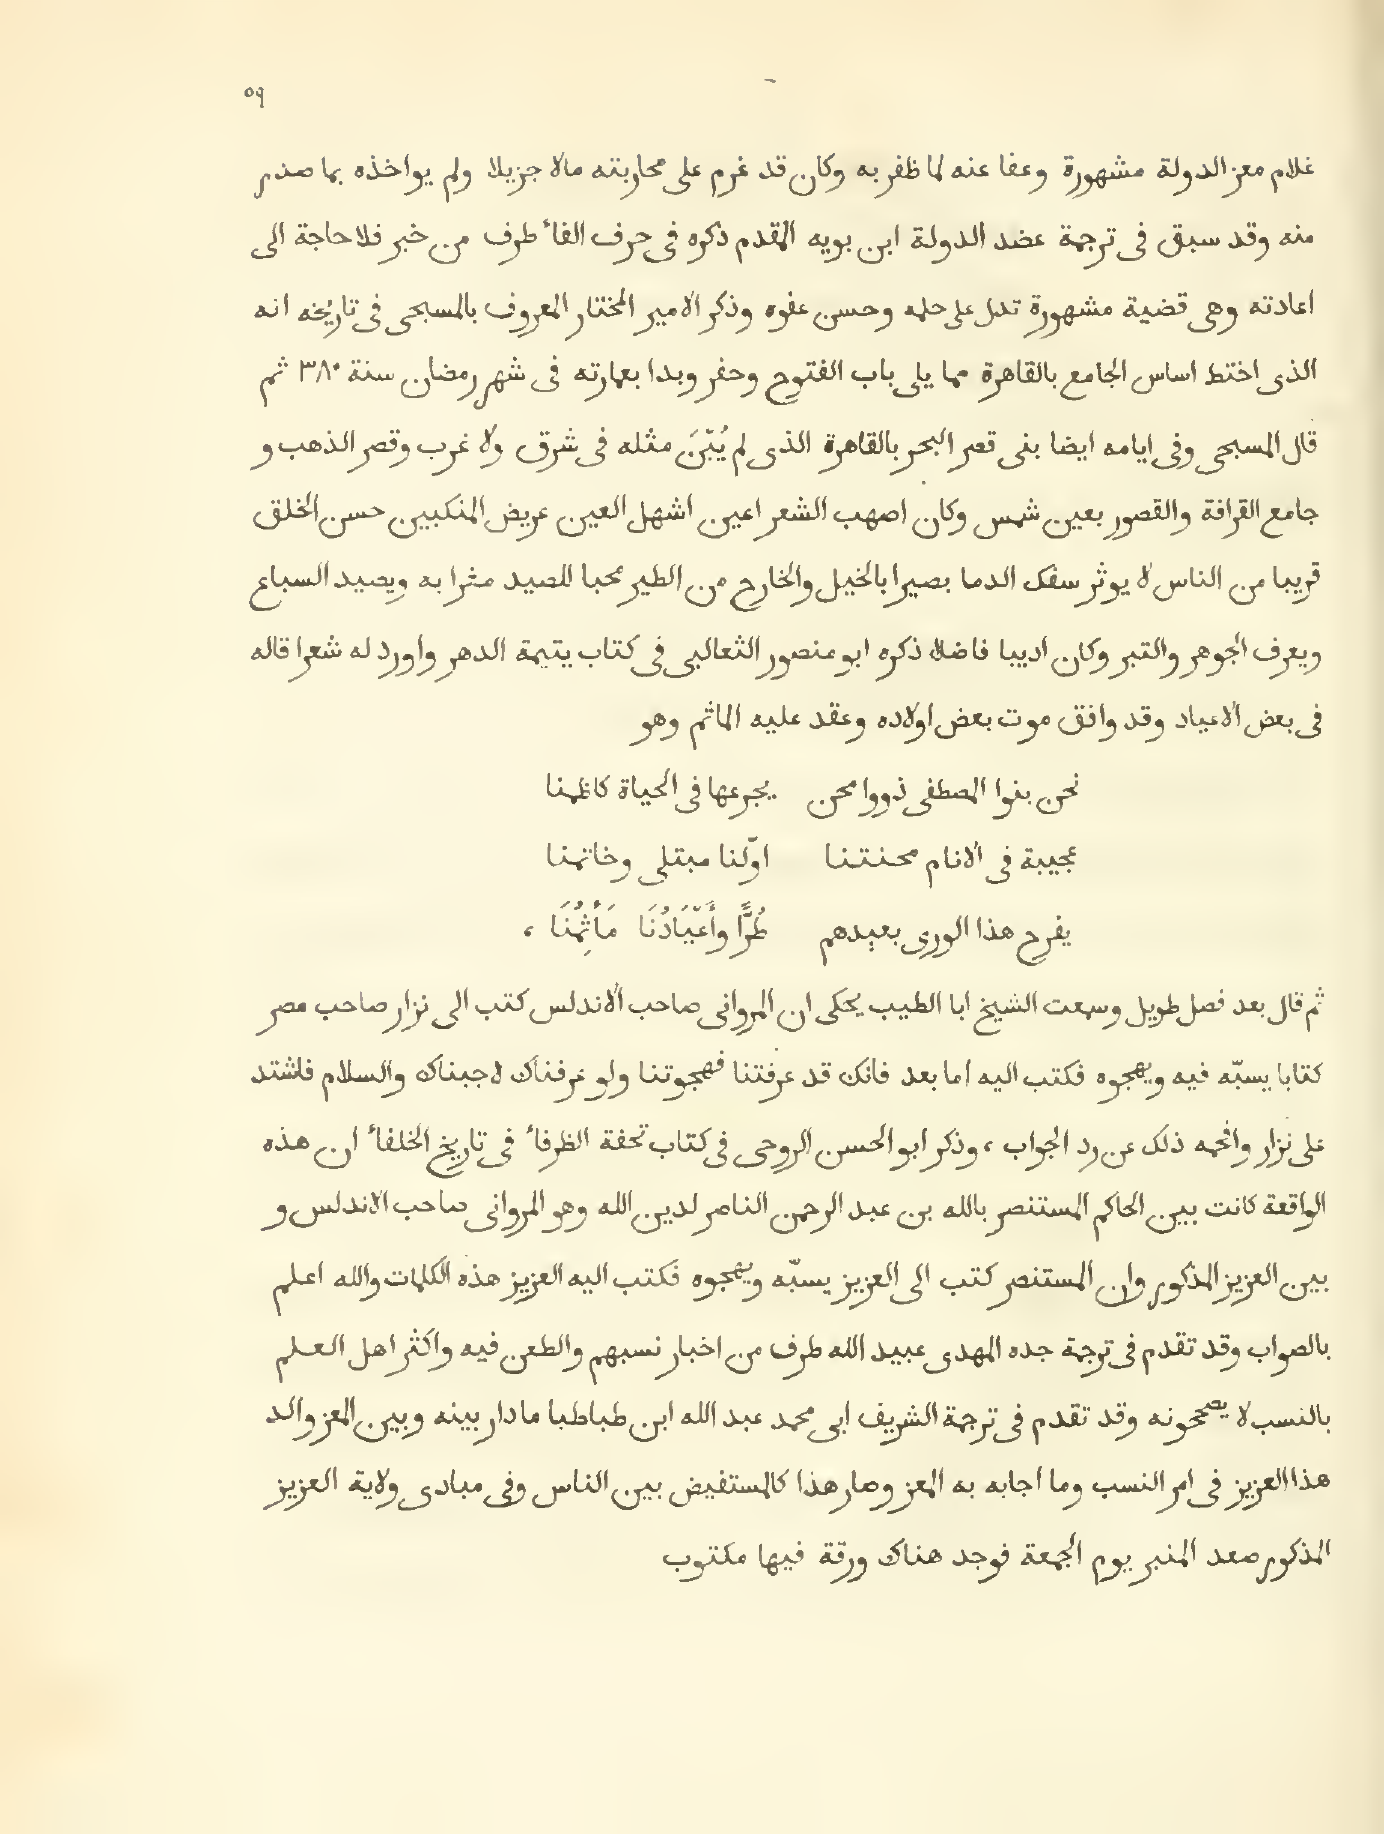 ٥٩
غلام معز الدولة مشهورة وعفا عنه لما ظفر به وكان قد غرم على محاربته مالا جزيلا ولم يواخذه بما صدر
منه وقد سبق فى ترجمة عضد الدولة ابن بويه المقدم ذكره فى حرف الفاٴ طرف من خبر فلا حاجة الى
اعادته وهى قضية مشهورة تدل على حلمه وحسن عفوه وذكر الامير المختار المعروف بالمسبحى فى تاريخه انه
الذى اختط اساس الجامع بالقاهرة مما يلى باب الفتوح وحفر وبدا بعمارته فى شهر رمضان سنة ٣٨٠ ثم
قال المسبحى وفى ايامه ايضا بنى قعر البحر بالقاهرة الذى لم يُبّنَ مثله فى شرق ولا غرب وقصر الذهب و
جامع القرافة والقصور بعين شمس وكان اصهب الشعر اعين اشهل العين عريض المنكبين حسن الخلق
قريبا من الناس لا يوثر سفك الدما بصيرا بالخيل والخارج من الطير محبا للصيد مغرا به ويصيد السباع
ويعرف الجوهر والتبر وكان اديبا فاضلا ذكره ابو منصور الثعالبى فى كتاب يتيمة الدهر واورد له شعرا قاله
فى بعض الاعياد وقد وافق موت بعض اولاده وعقد عليه الماثم وهو
نحن بنوا المصطفى ذووا محن يجرعها فى الحياة كاظمنا
عجيبة فى الانام محنتنا اوّلنا مبتلى وخاتمنا
يفرح هذا الورى بعيدهم طُرًّا وأَعّيَادُنَا مَأثِمُنَا ،
ثم قال بعد فصل طويل وسمعت الشيخ ابا الطيب يحكى ان المروانى صاحب الاندلس كتب الى نزار صاحب مصر
كتابا يسبّه فيه ويهجوه فكتب اليه اما بعد فانك قد عرفتنا فهجوتنا ولو عرفناك لاجبناك والسلام فاشتد
على نزار وافحمه ذلك عن رد الجواب ، وذكر ابو الحسن الروحى فى كتاب تحفة الظرفاٴ فى تاريخ الخلفاٴ ان هذه
الواقعة كانت بين الحاكم المستنصر بالله بن عبد الرحمن الناصر لدين الله وهو المروانى صاحب الاندلس و
بين العزيز المذكور وان المستنصر كتب الى العزيز يسبّه ويهجوه فكتب اليه العزيز هذه الكلمات والله اعلم
بالصواب وقد تقدم فى ترجمة جده المهدى عبيد الله طرف من اخبار نسبهم والطعن فيه واكثر اهل العلم
بالنسب لا يصححونه وقد تقدم فى ترجمة الشريف ابى محمد عبد الله ابن طباطبا ما دار بينه وبين المعز والد
هذا العزيز فى امر النسب وما اجابه به المعز وصار هذا كالمستفيض بين الناس وفى مبادى ولاية العزيز
المذكور صعد المنبر يوم الجمعة فوجد هناك ورقة فيها مكتوب